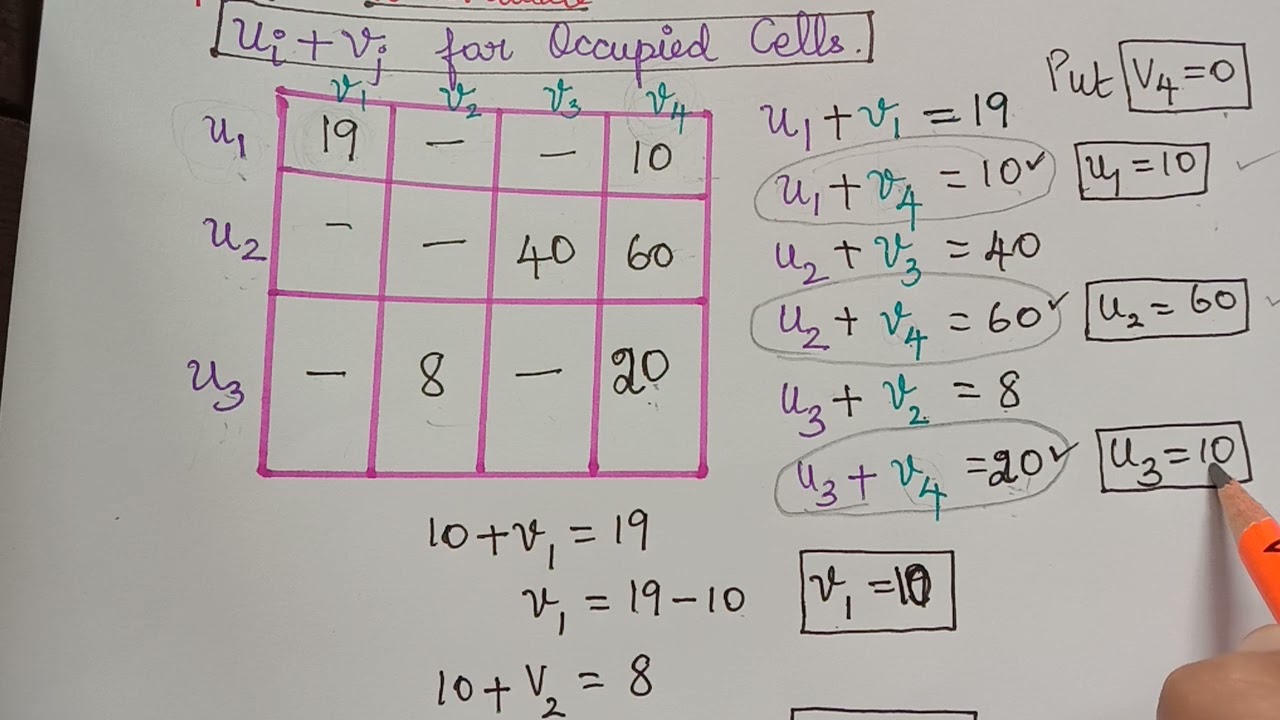 Ui + Vj for Occupied Cells.
Put V4 = 0
v1 v2 v3 v4
u1 19 — — 10
u2 - — 40 60
u3 — 8 — 20
u1 + v1 = 19
u1 + v4 = 10 ✓ u1 = 10 ✓
u2 + v3 = 40
u2 + v4 = 60 ✓ u2 = 60
u3 + v2 = 8
u3 + v4 = 20 ✓ u3 = 10
10 + v1 = 19
v1 = 19 - 10 v1 = 10
10 + V2 = 8